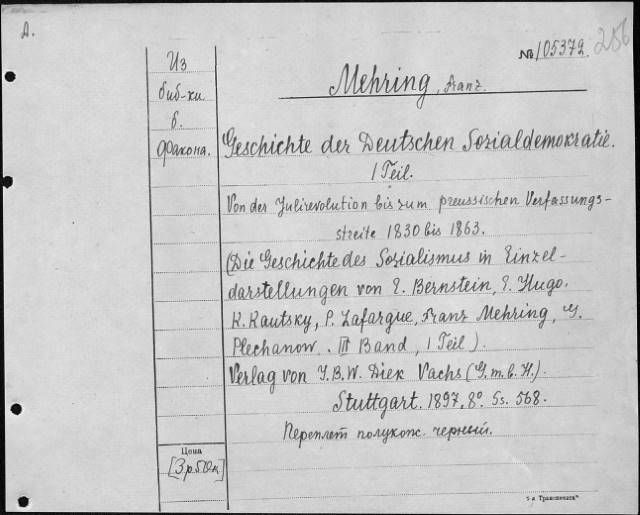 A.
№ 105372. 256
Из
биб-ки
б.
Факона.
Mehring, Franz.
Geschichte der Deutschen Sozialdemokratie.
I Teil.
Von der Julirevolution bis zum preussischen Verfassungs-
streite 1830 bis 1863.
(Die Geschichte des Sozialismus in Einzel-
darstellungen von E. Bernstein, E. Hugo.
K. Kautsky, P. Lafargue, Franz Mehring, G.
Plechanow. III Band, I Teil).
Verlag von J.B.W. Diek Vachs (G.m.b.H.).
Stuttgart. 1897. 8° Ss. 568.
Переплет полукож. черный.
Цена
[3р.50к]